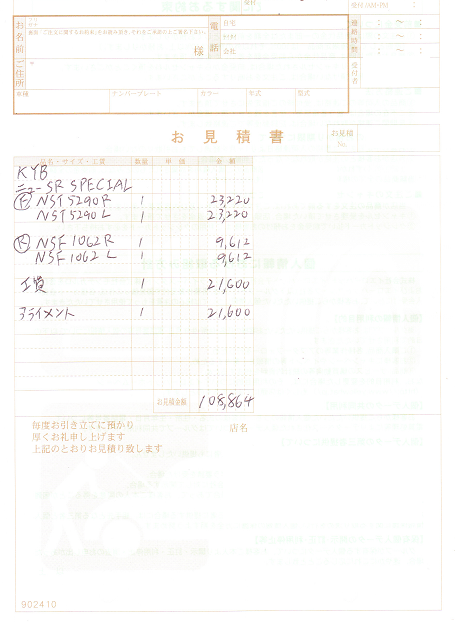 受付
受付 /AM・PM :
お名前
様
電話
自宅
会社
連絡時間
: ～ :
: ～ :
: ～ :
ご住所
受付者
車種 ナンバープレート カラー 年式 型式
お見積書
お見積 No.
品名・サイズ・工賃 数量 単価 金額
KYB
ニューSR SPECIAL
Ⓕ NST5290R 1 23,220
NST5290L 1 23,220
Ⓡ NSF1062R 1 9,612
NSF1062L 1 9,612
工賃 1 21,600
アライメント 1 21,600
お見積金額 108,864
毎度お引き立てに預かり 店名
厚くお礼申し上げます
上記のとおりお見積り致します
902410